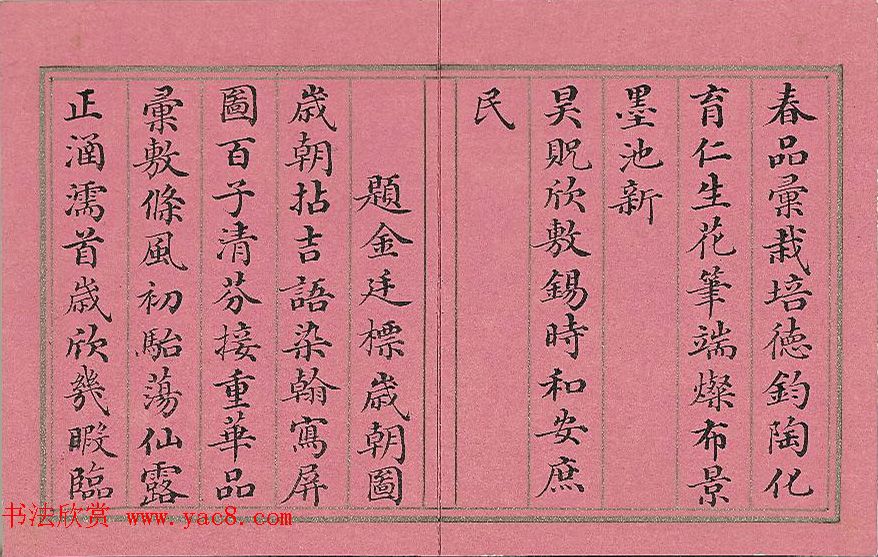 春品彙栽培德鈞陶化
育仁生花筆端燦布景
墨池新
昊貺欣敷錫時和安庶
民
題金廷標歲朝圖
歲朝拈吉語染翰寫屏
圖百子清芬接重華品
彙敷條風初駘蕩仙露
正涵濡首歲欣幾暇臨
书法欣赏 www.yac8.com